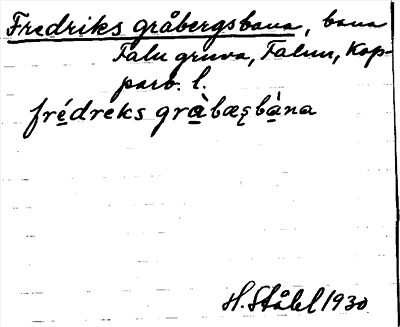 Fredriks gråbergsbana, bana
Falu gruva, Falun, Kop-
parb. l.
frédreks gràbæs̨bàna
H. Ståhl 1930